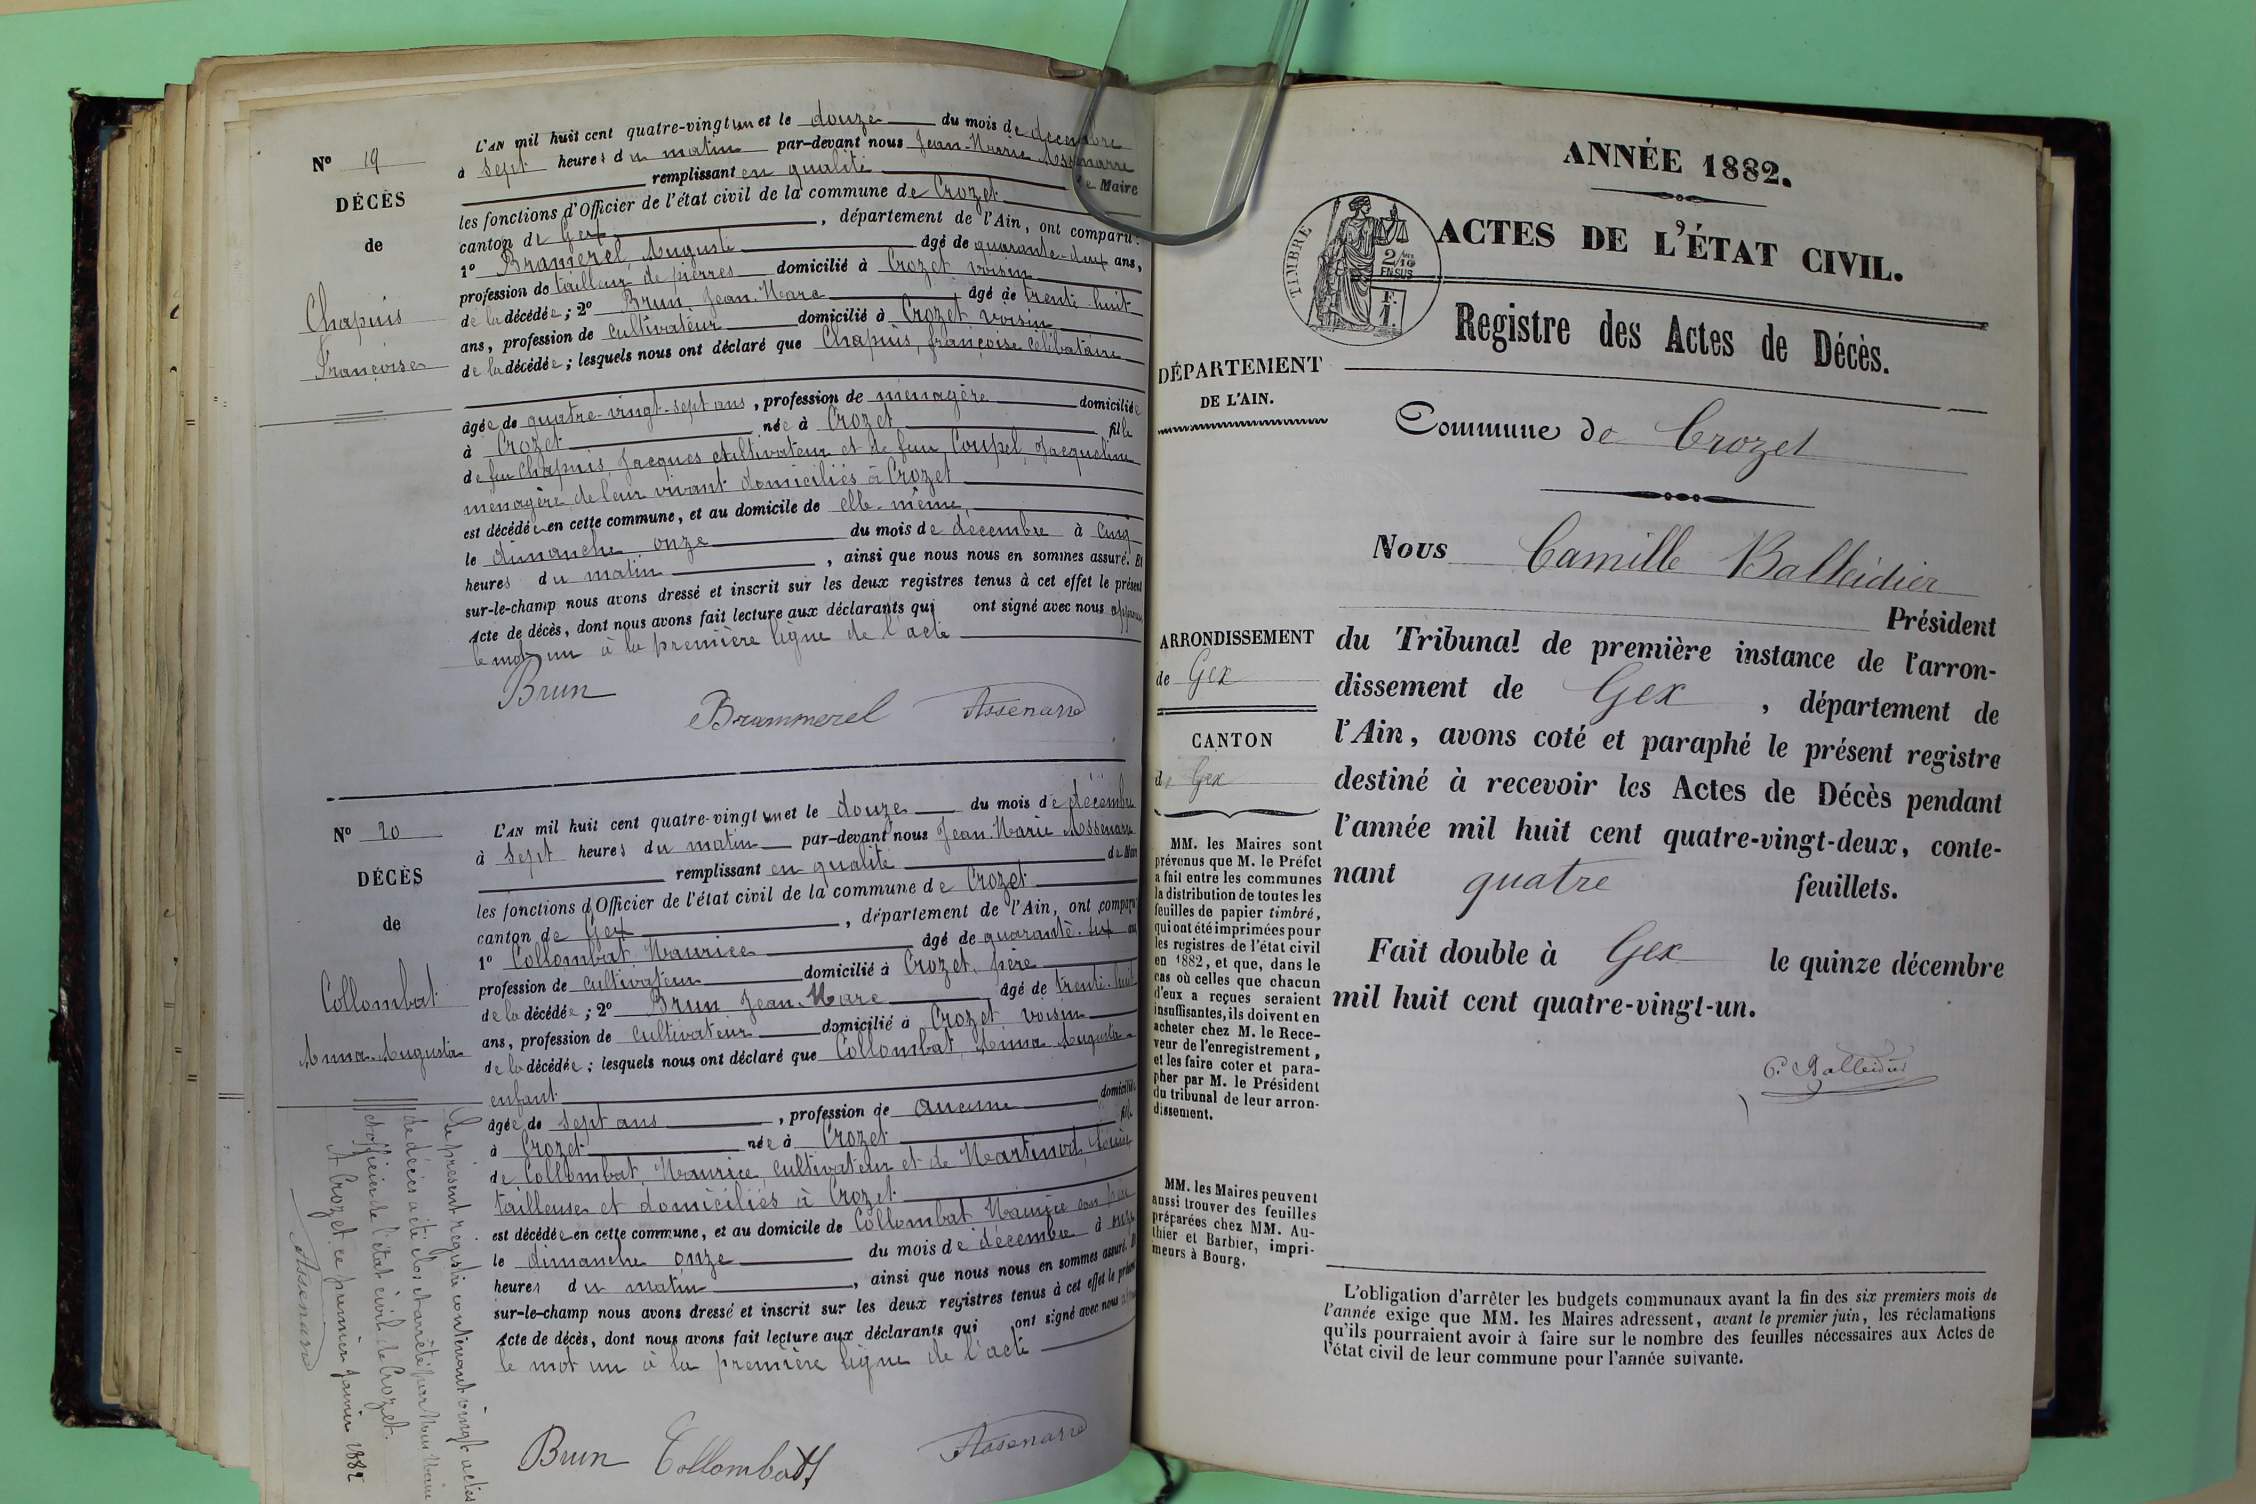 N° 19
DÉCÈS
de
Chapuis
Françoise
L'AN mil huit cent quatre-vingt un et le douze du mois de décembre
à sept heures du matin par-devant nous Jean-Marie Assenarre
remplissant en qualité de Maire
les fonctions d'Officier de l'état civil de la commune de Crozet
canton de Gex, département de l'Ain, ont comparu :
1° Bramerel, Auguste âgé de quarante-deux ans,
profession de tailleur de pierres domicilié à Crozet voisin
de la décédée ; 2° Brun, Jean-Marc âgé de trente-huit
ans, profession de cultivateur domicilié à Crozet, voisin
de la décédée ; lesquels nous ont déclaré que Chapuis, françoise célibataire
âgée de quatre-vingt-sept ans, profession de ménagère domiciliée
à Crozet née à Crozet fille
de feu Chapuis, Jacques cultivateur et de feu Coupel, Jacqueline
ménagère de leur vivant domiciliés à Crozet
est décédée en cette commune, et au domicile de elle-même,
le dimanche onze du mois de décembre à cinq
heures du matin, ainsi que nous nous en sommes assuré. Et
sur-le-champ nous avons dressé et inscrit sur les deux registres tenus à cet effet le présent
Acte de décès, dont nous avons fait lecture aux déclarants qui ont signé avec nous
le mot un à la première ligne de l'acte
Brun
Brammerel
Assenarre
N° 20
DÉCÈS
de
Collombat
Anna-Augusta
L'AN mil huit cent quatre-vingt un et le douze du mois de décembre
à sept heures du matin par-devant nous Jean-Marie Assenarre
remplissant en qualité de Maire
les fonctions d'Officier de l'état civil de la commune de Crozet
canton de Gex, département de l'Ain, ont comparu
1° Collombat Maurice âgé de quarante-six ans
profession de cultivateur domicilié à Crozet, père
de la décédée ; 2° Brun Jean-Marc âgé de trente-huit
ans, profession de cultivateur domicilié à Crozet voisin
de la décédée ; lesquels nous ont déclaré que Collombat, Anna Augusta
enfant
âgée de sept ans, profession de aucune domiciliée
à Crozet née à Crozet fille
de Collombat, Maurice, cultivateur et de Martinod, Louise
tailleuse et domiciliés à Crozet
est décédée en cette commune, et au domicile de Collombat Maurice son père
le dimanche onze du mois de décembre à onze
heures du matin, ainsi que nous nous en sommes assuré. Et
sur-le-champ nous avons dressé et inscrit sur les deux registres tenus à cet effet le présent
Acte de décès, dont nous avons fait lecture aux déclarants qui ont signé avec nous
le mot un à la première ligne de l'acte
Brun
Collombat
Assenarre
Le présent registre contenant vingt actes
de décès a été clos et arrêté par Nous Maire
et officier de l'état civil de Crozet.
A Crozet ce premier Janvier 1882
Assenarre
ANNÉE 1882.
TIMBRE
2/10
EN SUS
F.
1.
ACTES DE L'ÉTAT CIVIL.
Registre des Actes de Décès.
DÉPARTEMENT
DE L'AIN.
Commune de Crozet
Nous Camille Balleidier
Président
du Tribunal de première instance de l'arron-
dissement de Gex, département de
l'Ain, avons coté et paraphé le présent registre
destiné à recevoir les Actes de Décès pendant
l'année mil huit cent quatre-vingt-deux, conte-
nant quatre feuillets.
Fait double à Gex le quinze décembre
mil huit cent quatre-vingt-un.
C. Balleidier
ARRONDISSEMENT
de Gex
CANTON
de Gex
MM. les Maires sont
prévenus que M. le Préfet
a fait entre les communes
la distribution de toutes les
feuilles de papier timbré,
qui ont été imprimées pour
les registres de l'état civil
en 1882, et que, dans le
cas où celles que chacun
d'eux a reçues seraient
insuffisantes, ils doivent en
acheter chez M. le Rece-
veur de l'enregistrement,
et les faire coter et para-
pher par M. le Président
du tribunal de leur arron-
dissement.
MM. les Maires peuvent
aussi trouver des feuilles
préparées chez MM. Au-
thier et Barbier, impri-
meurs à Bourg.
L'obligation d'arrêter les budgets communaux avant la fin des six premiers mois de
l'année exige que MM. les Maires adressent, avant le premier juin, les réclamations
qu'ils pourraient avoir à faire sur le nombre des feuilles nécessaires aux Actes de
l'état civil de leur commune pour l'année suivante.